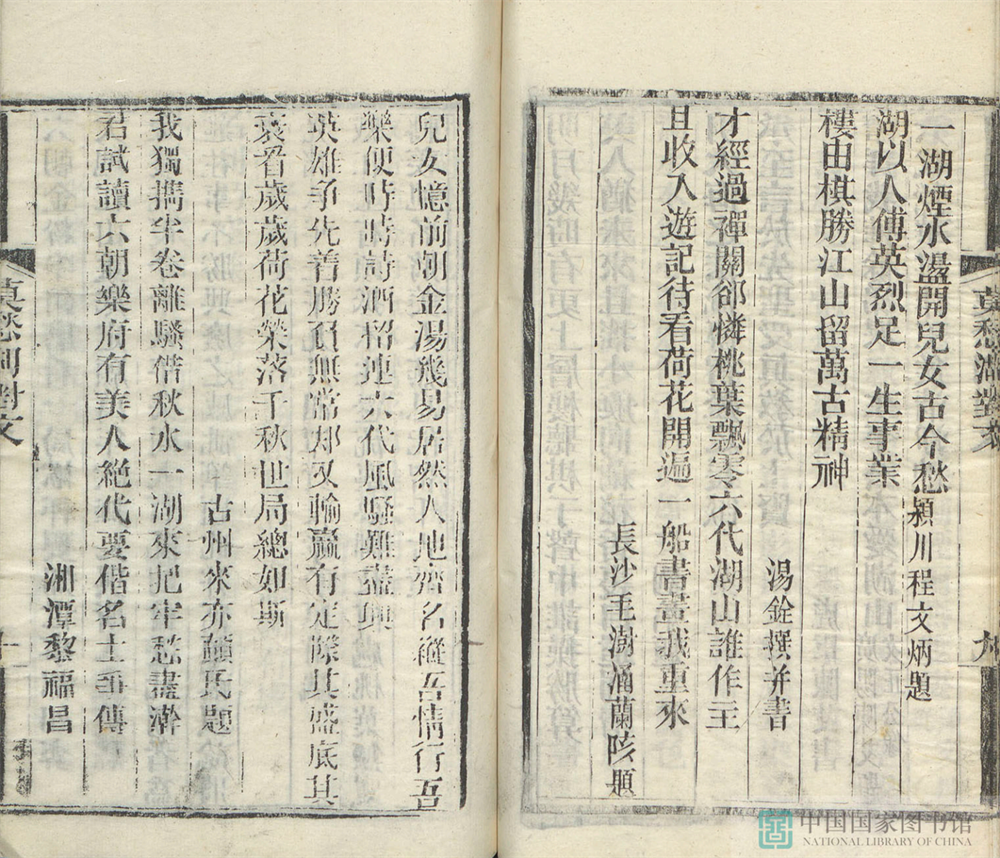 一湖煙水盪開兒女古今愁 潁川程文炳題
湖以人傳英烈足一生事業
樓由棋勝江山留萬古精神
湯銓撰并書
才經過禪關郤憐桃葉飄零六代湖山誰作主
且收入遊記待看荷花開遍一船書畫我重來
長沙毛澍涌蘭陔題
兒女憶前朝金湯幾易居然人地齊名縱吾情行吾
樂便時時詩酒招連六代風騷難盡興
英雄爭先著勝負無常却又輸贏有定際其盛底其
衰看歲歲荷花榮落千秋世局總如斯
古州來亦顛氏題
我獨攜半卷離騷借秋水一湖來把牢愁盡澣
君試讀六朝樂府有美人絕代要偕名士爭傳
湘潭黎福昌
莫愁湖對文
九
莫愁湖對文
十
中国国家图书馆
NATIONAL LIBRARY OF CHINA